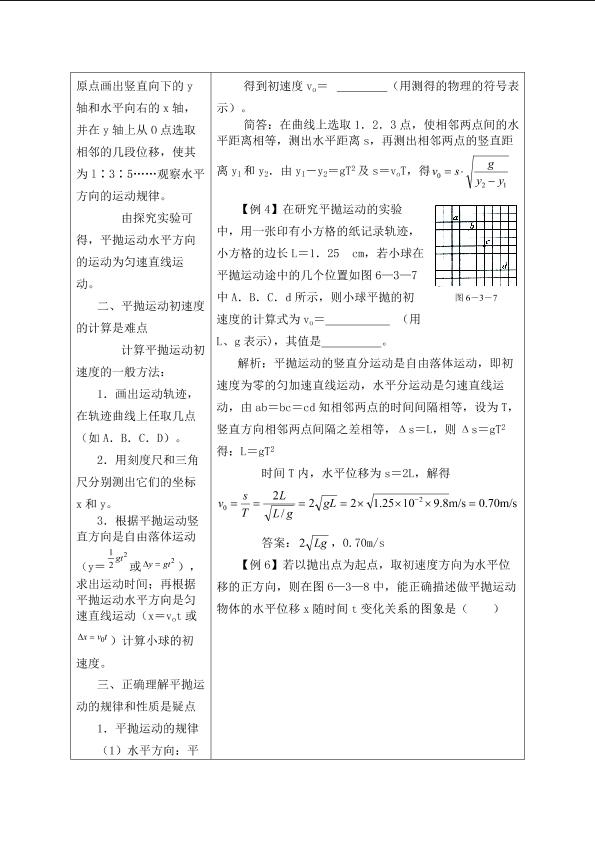 原点画出竖直向下的 y
轴和水平向右的 x 轴，
并在 y 轴上从 O 点选取
相邻的几段位移，使其
为 1∶3∶5……观察水平
方向的运动规律。
由探究实验可
得，平抛运动水平方向
的运动为匀速直线运
动。
二、平抛运动初速度
的计算是难点
计算平抛运动初
速度的一般方法：
1．画出运动轨迹，
在轨迹曲线上任取几点
（如 A．B．C．D）。
2．用刻度尺和三角
尺分别测出它们的坐标
x 和 y。
3．根据平抛运动竖
直方向是自由落体运动
（y＝\frac{1}{2}gt²或Δy = gt²），
求出运动时间；再根据
平抛运动水平方向是匀
速直线运动（x＝v₀t 或
Δx = v₀t）计算小球的初
速度。
三、正确理解平抛运
动的规律和性质是疑点
1．平抛运动的规律
（1）水平方向：平
得到初速度 v₀＝ ________（用测得的物理的符号表
示）。
简答：在曲线上选取 1．2．3 点，使相邻两点间的水
平距离相等，测出水平距离 s，再测出相邻两点的竖直距
离 y₁和 y₂．由 y₁－y₂＝gT²及 s＝v₀T，得v₀ = s·\sqrt{\frac{g}{y₂ − y₁}}
【例 4】在研究平抛运动的实验
中，用一张印有小方格的纸记录轨迹，
小方格的边长 L＝1．25 cm，若小球在
平抛运动途中的几个位置如图 6—3—7
中 A．B．C．d 所示，则小球平抛的初
速度的计算式为 v₀＝__________ （用
L、g 表示），其值是_________。
a
b
c
d
图 6－3－7
解析：平抛运动的竖直分运动是自由落体运动，即初
速度为零的匀加速直线运动，水平分运动是匀速直线运
动，由 ab＝bc＝cd 知相邻两点的时间间隔相等，设为 T，
竖直方向相邻两点间隔之差相等，Δs＝L，则 Δs＝gT²
得：L＝gT²
时间 T 内，水平位移为 s＝2L，解得
v₀ = \frac{s}{T} = \frac{2L}{\sqrt{L/g}} = 2\sqrt{gL} = 2×\sqrt{1.25×10⁻²×9.8}m/s = 0.70m/s
答案：2\sqrt{Lg}，0.70m/s
【例 6】若以抛出点为起点，取初速度方向为水平位
移的正方向，则在图 6—3—8 中，能正确描述做平抛运动
物体的水平位移 x 随时间 t 变化关系的图象是（ ）